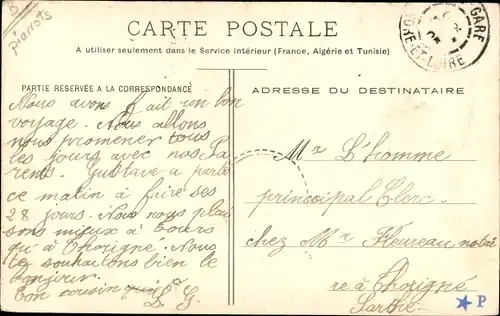 pierrots
CARTE POSTALE
A utiliser seulement dans le Service Intérieur (France, Algérie et Tunisie)
GARE
ET-LOIRE
PARTIE RÉSERVÉE A LA CORRESPONDANCE
Nous avons fait un bon
voyage. Nous allons
nous promener tous
les jours avec nos Pa
rents. Gustave a parti
ce matin a faire ses
28 jours. Nous nous plai
sons mieux à Tours
qu'à Thorigné. Nous
te souhaitons bien le
bonjour.
ton cousin
L. G.
ADRESSE DU DESTINATAIRE
Mr L'homme
principal Clerc
chez Mr Fleureau, notai
re à Thorigné
Sarthe
P